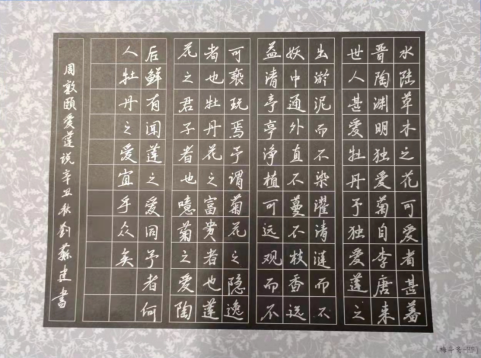 水陸草木之花可爱者甚蕃
晋陶渊明独爱菊自李唐来
世人甚爱牡丹予独爱莲之
出淤泥而不染濯清涟而不
妖中通外直不蔓不枝香远
益清亭亭净植可远观而不
可亵玩焉予谓菊花之隐逸
者也牡丹花之富贵者也莲
花之君子者也噫菊之爱陶
后鲜有闻莲之爱同予者何
人牡丹之爱宜乎众矣
周敦颐爱莲说辛丑秋劉蘇建書